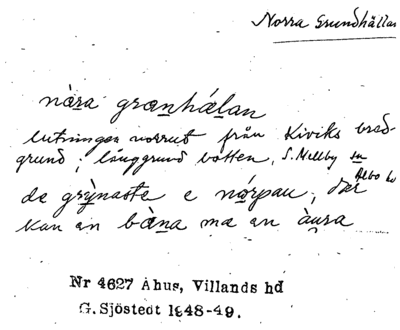 Norra Grundhällan
nà̱ra græṉhǽlan
lutningen norrut från Kiviks bred-
grund; långgrund botten, S. Mellby sn
Albo hd
de grỳ̱naste e nó̱rpau, där
kan an bà̱na ma an àu̱ra
Nr 4627 Åhus, Villands hd
G. Sjöstedt 1948-49.